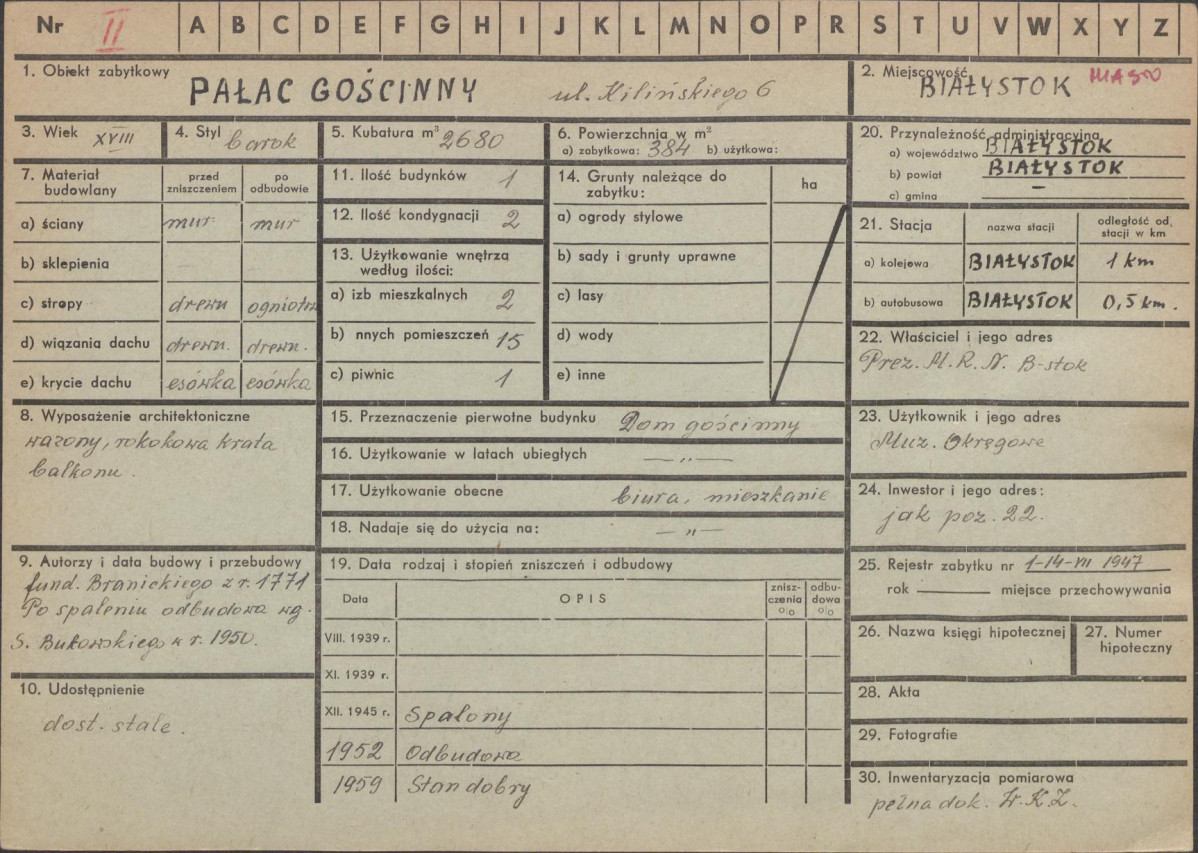 Nr II A B C D E F G H I J K L M N O P R S T U V W X Y Z
1. Obiekt zabytkowy
PAŁAC GOŚCINNY ul. Kilińskiego 6
2. Miejscowość
BIAŁYSTOK
3. Wiek XVIII
4. Styl barok
5. Kubatura m³ 2680
6. Powierzchnia w m²
a) zabytkowa: 384 b) użytkowa:
20. Przynależność administracyjna
a) województwo BIAŁYSTOK
b) powiat BIAŁYSTOK
c) gmina –
7. Materiał budowlany
przed zniszczeniem
po odbudowie
a) ściany mur mur
b) sklepienia
c) stropy drewn ogniotrw
d) wiązania dachu drewn. drewn.
e) krycie dachu esówka esówka
11. Ilość budynków 1
12. Ilość kondygnacji 2
13. Użytkowanie wnętrza
według ilości:
a) izb mieszkalnych 2
b) nnych pomieszczeń 15
c) piwnic 1
14. Grunty należące do
zabytku:
ha
a) ogrody stylowe
b) sady i grunty uprawne
c) lasy
d) wody
e) inne
21. Stacja
nazwa stacji
odległość od
stacji w km
a) kolejowa BIAŁYSTOK 1 km
b) autobusowa BIAŁYSTOK 0,5 km.
22. Właściciel i jego adres
Prez. M.R.N. B-stok
8. Wyposażenie architektoniczne
wazony, rokokowa krata
balkonu.
15. Przeznaczenie pierwotne budynku Dom gościnny
16. Użytkowanie w latach ubiegłych —„—
17. Użytkowanie obecne biura, mieszkanie
18. Nadaje się do użycia na: —„—
23. Użytkownik i jego adres
Muz. Okręgowe
24. Inwestor i jego adres:
jak poz. 22.
9. Autorzy i data budowy i przebudowy
fund. Branickiego z r. 1771
Po spaleniu odbudowa wg.
S. Bukowskiego w r. 1950.
10. Udostępnienie
dost. stale.
19. Data rodzaj i stopień zniszczeń i odbudowy
Data
OPIS
znisz-
czenia
%
odbu-
dowa
%
VIII. 1939 r.
XI. 1939 r.
XII. 1945 r. Spalony
1952 Odbudowa
1959 Stan dobry
25. Rejestr zabytku nr 1-14-VII 1947
rok miejsce przechowywania
26. Nazwa księgi hipotecznej
27. Numer
hipoteczny
28. Akta
29. Fotografie
30. Inwentaryzacja pomiarowa
pełna dok. W.K.Z.